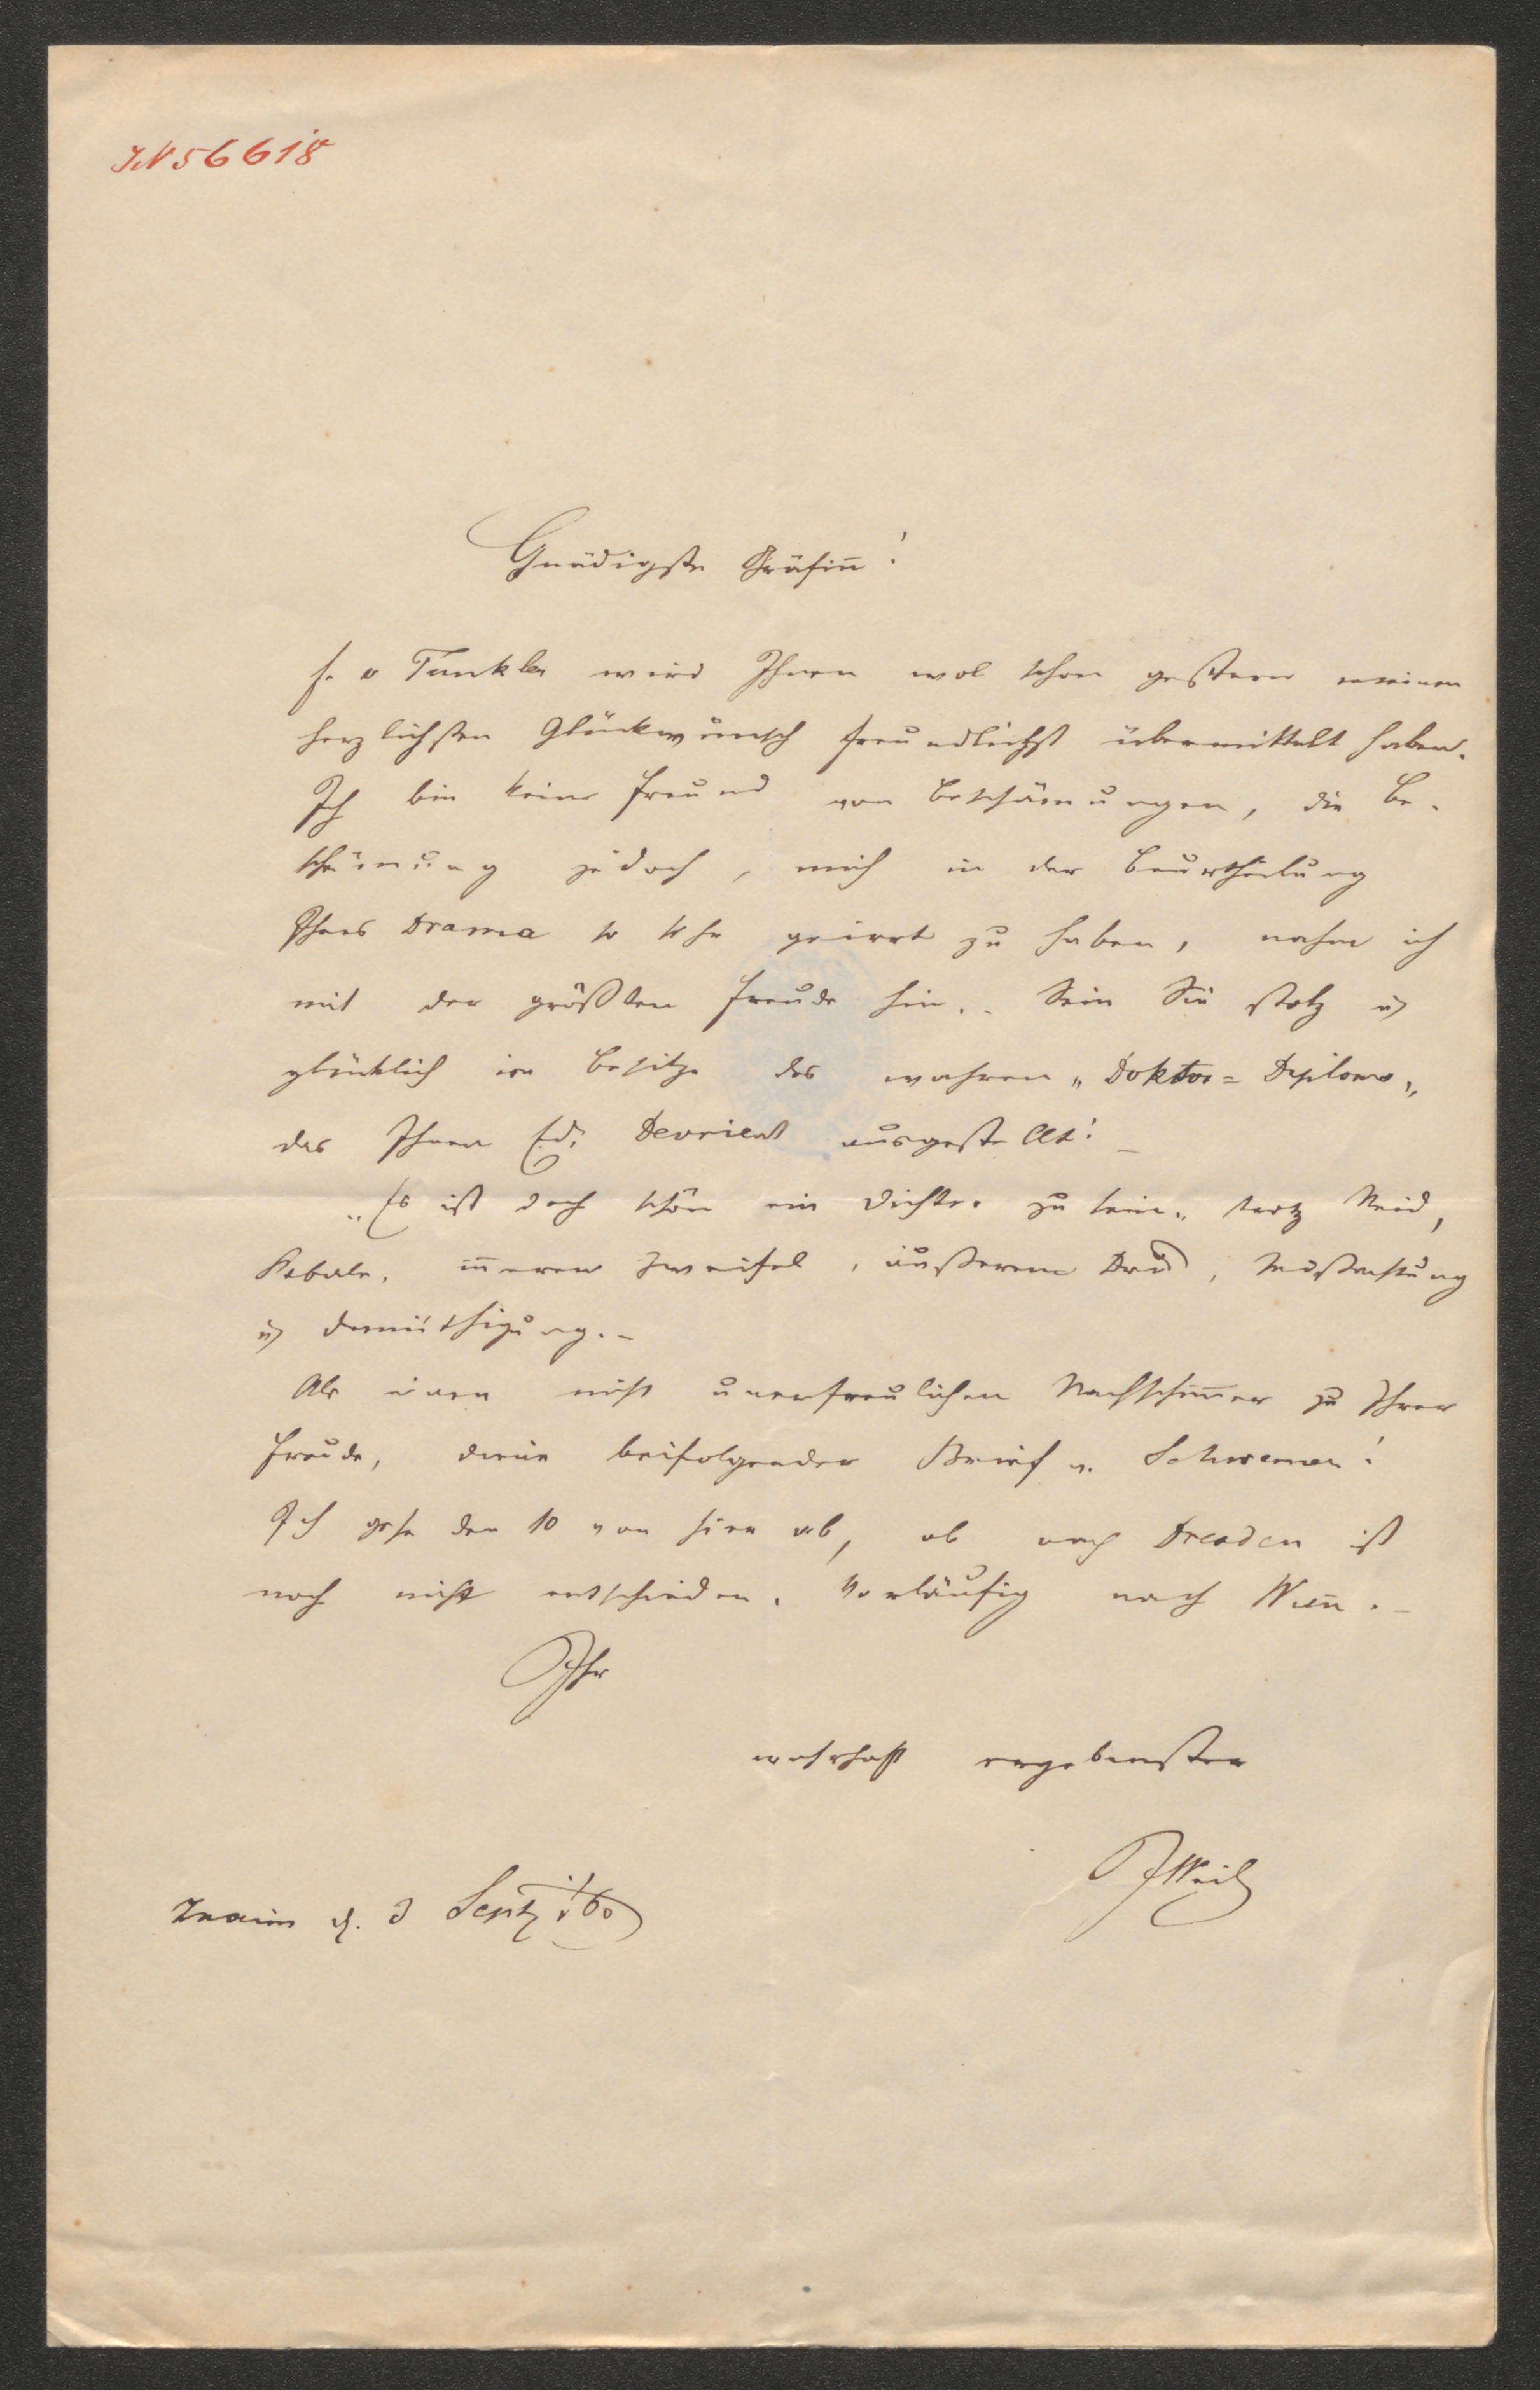 IN 56618
Gnädigste Gräfin̄!
H. v Tunkler wird Ihnen wol schon gestern meinen
herzlichsten Glückwunsch freundlichst übermittelt haben.
Ich bin kein Freund von Beschämungen, die Be-
schämung jedoch, mich in der Beurtheilung
Ihres Drama so sehr geirrt zu haben, nahm ich
mit der größten Freude hin. - Sein Sie stolz u
glücklich im Besitze des wahren „Doktor= Diploms„
das Ihnen Ed: Devrient ausgestellt! _
„Es ist doch schön ein Dichter zu sein„ trotz Neid,
Kabale, in̄erem Zweifel, äußerem Druck, Mißachtung
u Demüthigung. -
Als einen nicht unerfreulichen Nachschim̄er zu Ihrer
Freude, diene beifolgender Brief v.
Ich gehe den 10 von hier ab, ob nach Dresden ist
noch nicht entschieden. Vorläufig nach Wien. _
Ihr
wahrhaft ergebenster
JWeil
Znaim d. 3 Sept 60